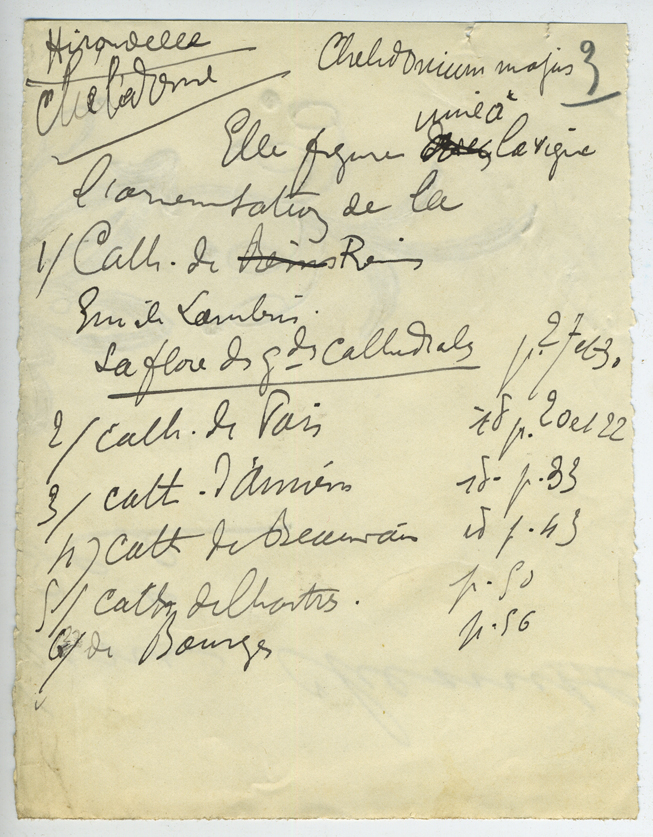 Hirondelle
Chelidoine
Chelidonium majus 3
unie à
Elle figure avec la vigne
l'ornementation de la
1/ Cath. de Reims Reims
Emile Lambin.
La flore des gdes Cathedrales p. 27 et 30
2/ Cath. de Paris id p. 20 et 22
3/ cath. d'Amiens id. p. 33
4/ cath de Beauvais id p. 43
5/ cath de Chartres. p. 50
6/ de Bourges p. 56